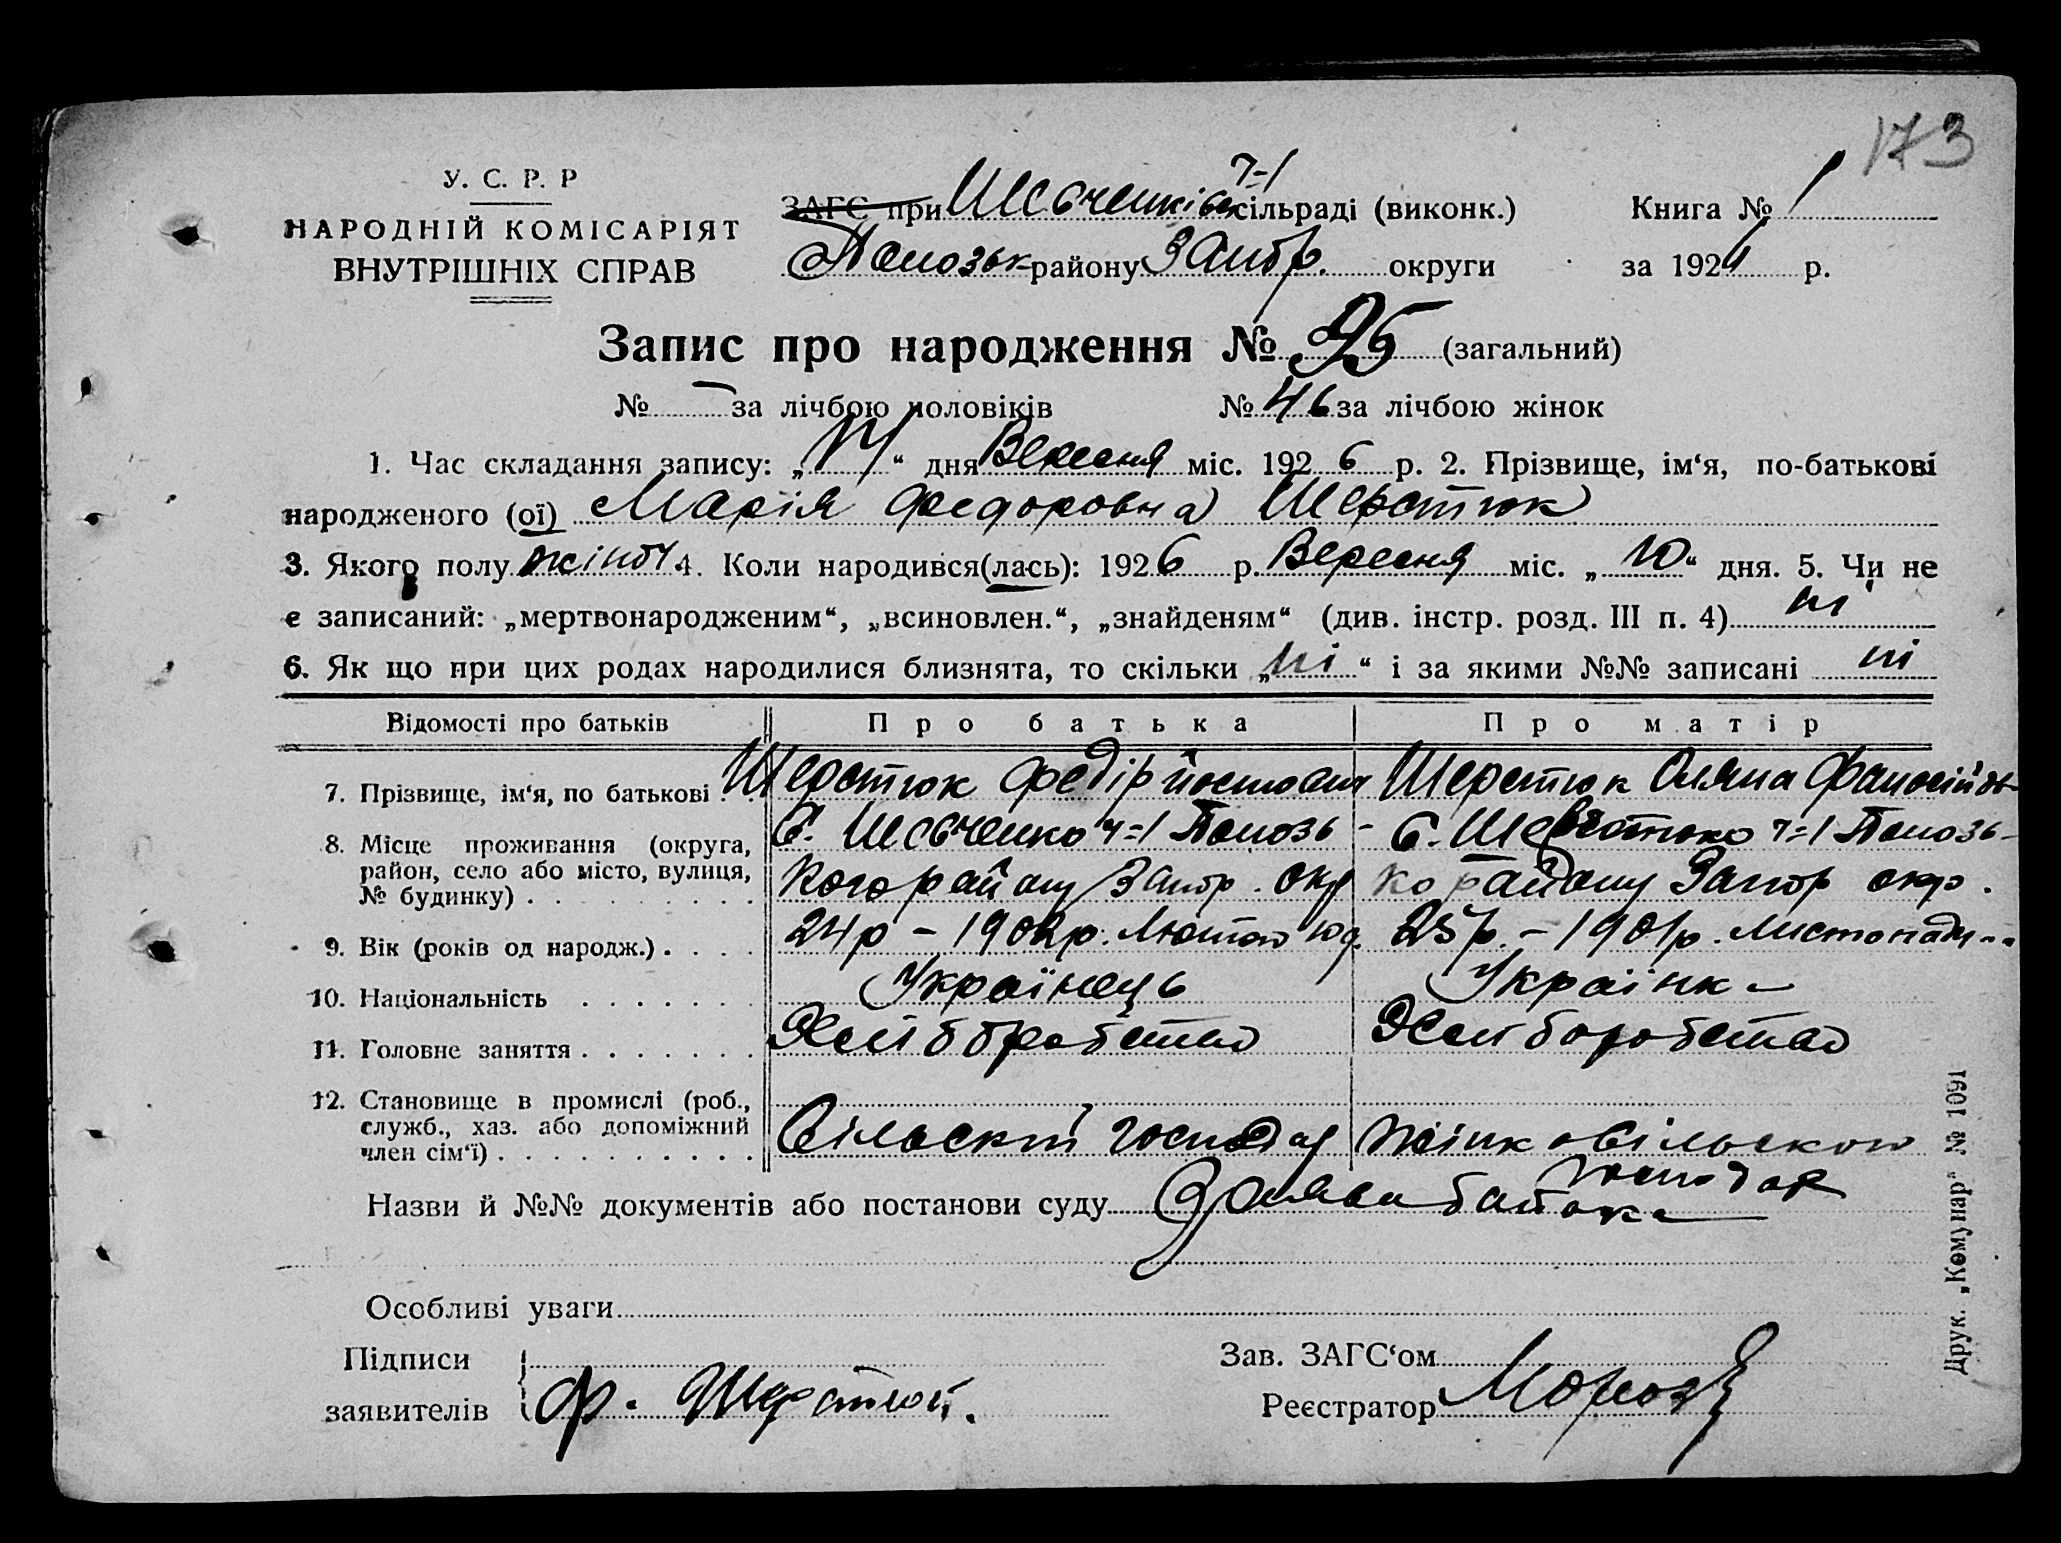 173
У. С. Р. Р
НАРОДНІЙ КОМІСАРІЯТ
ВНУТРІШНІХ СПРАВ
ЗАГС при Шевченківськ ч=1 сільраді (виконк.) Книга № 1
району Запор. округи за 192 р.
Запис про народження № 95 (загальний)
№ — за лічбою чоловіків № 46 за лічбою жінок
1. Час складання запису: „ “ дня Вересня міс. 1926 р. 2. Прізвище, ім‘я, по-батькові
народженого (ої) Марія Федоровна Шерстюк
3. Якого полу жіноч 4. Коли народився(лась): 1926 р. Вересня міс. „10“ дня. 5. Чи не
є записаний: „мертвонародженим“, „всиновлен.“, „знайденям“ (див. інстр. розд. III п. 4) ні
6. Як що при цих родах народилися близнята, то скільки „ні“ і за якими №№ записані ні
Відомості про батьків Про батька Про матір
7. Прізвище, ім‘я, по батькові . . Шерстюк Федір Шерстюк Оляна
8. Місце проживання (округа, С. Шевченко ч=1 С. ч=1
район, село або місто, вулиця, кого району Запор. окр ко району Запор окр.
№ будинку) . . . . . . . . .
9. Вік (років од народж.) . . . . 24р – 1902р. Лютого 10д. 25р. – 1901р. Листопад
10. Національність . . . . . . . Українець Українка
11. Головне заняття . . . . . . . Хліборобство Хліборобство
12. Становище в промислі (роб.,
служб., хаз. або допоміжний Сільский господар Жінка сільского
член сім‘ї) . . . . . . . . . . господар
Назви й №№ документів або постанови суду Заява батька
Особливі уваги
Підписи Зав. ЗАГС‘ом
заявителів Ф. Шерстюк. Реєстратор Мороз
Друк. „Комунар“ № 1091